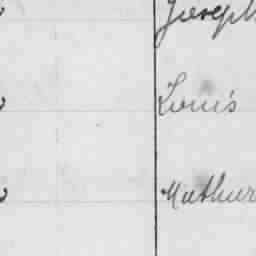 Joseph
Louis
Mathur